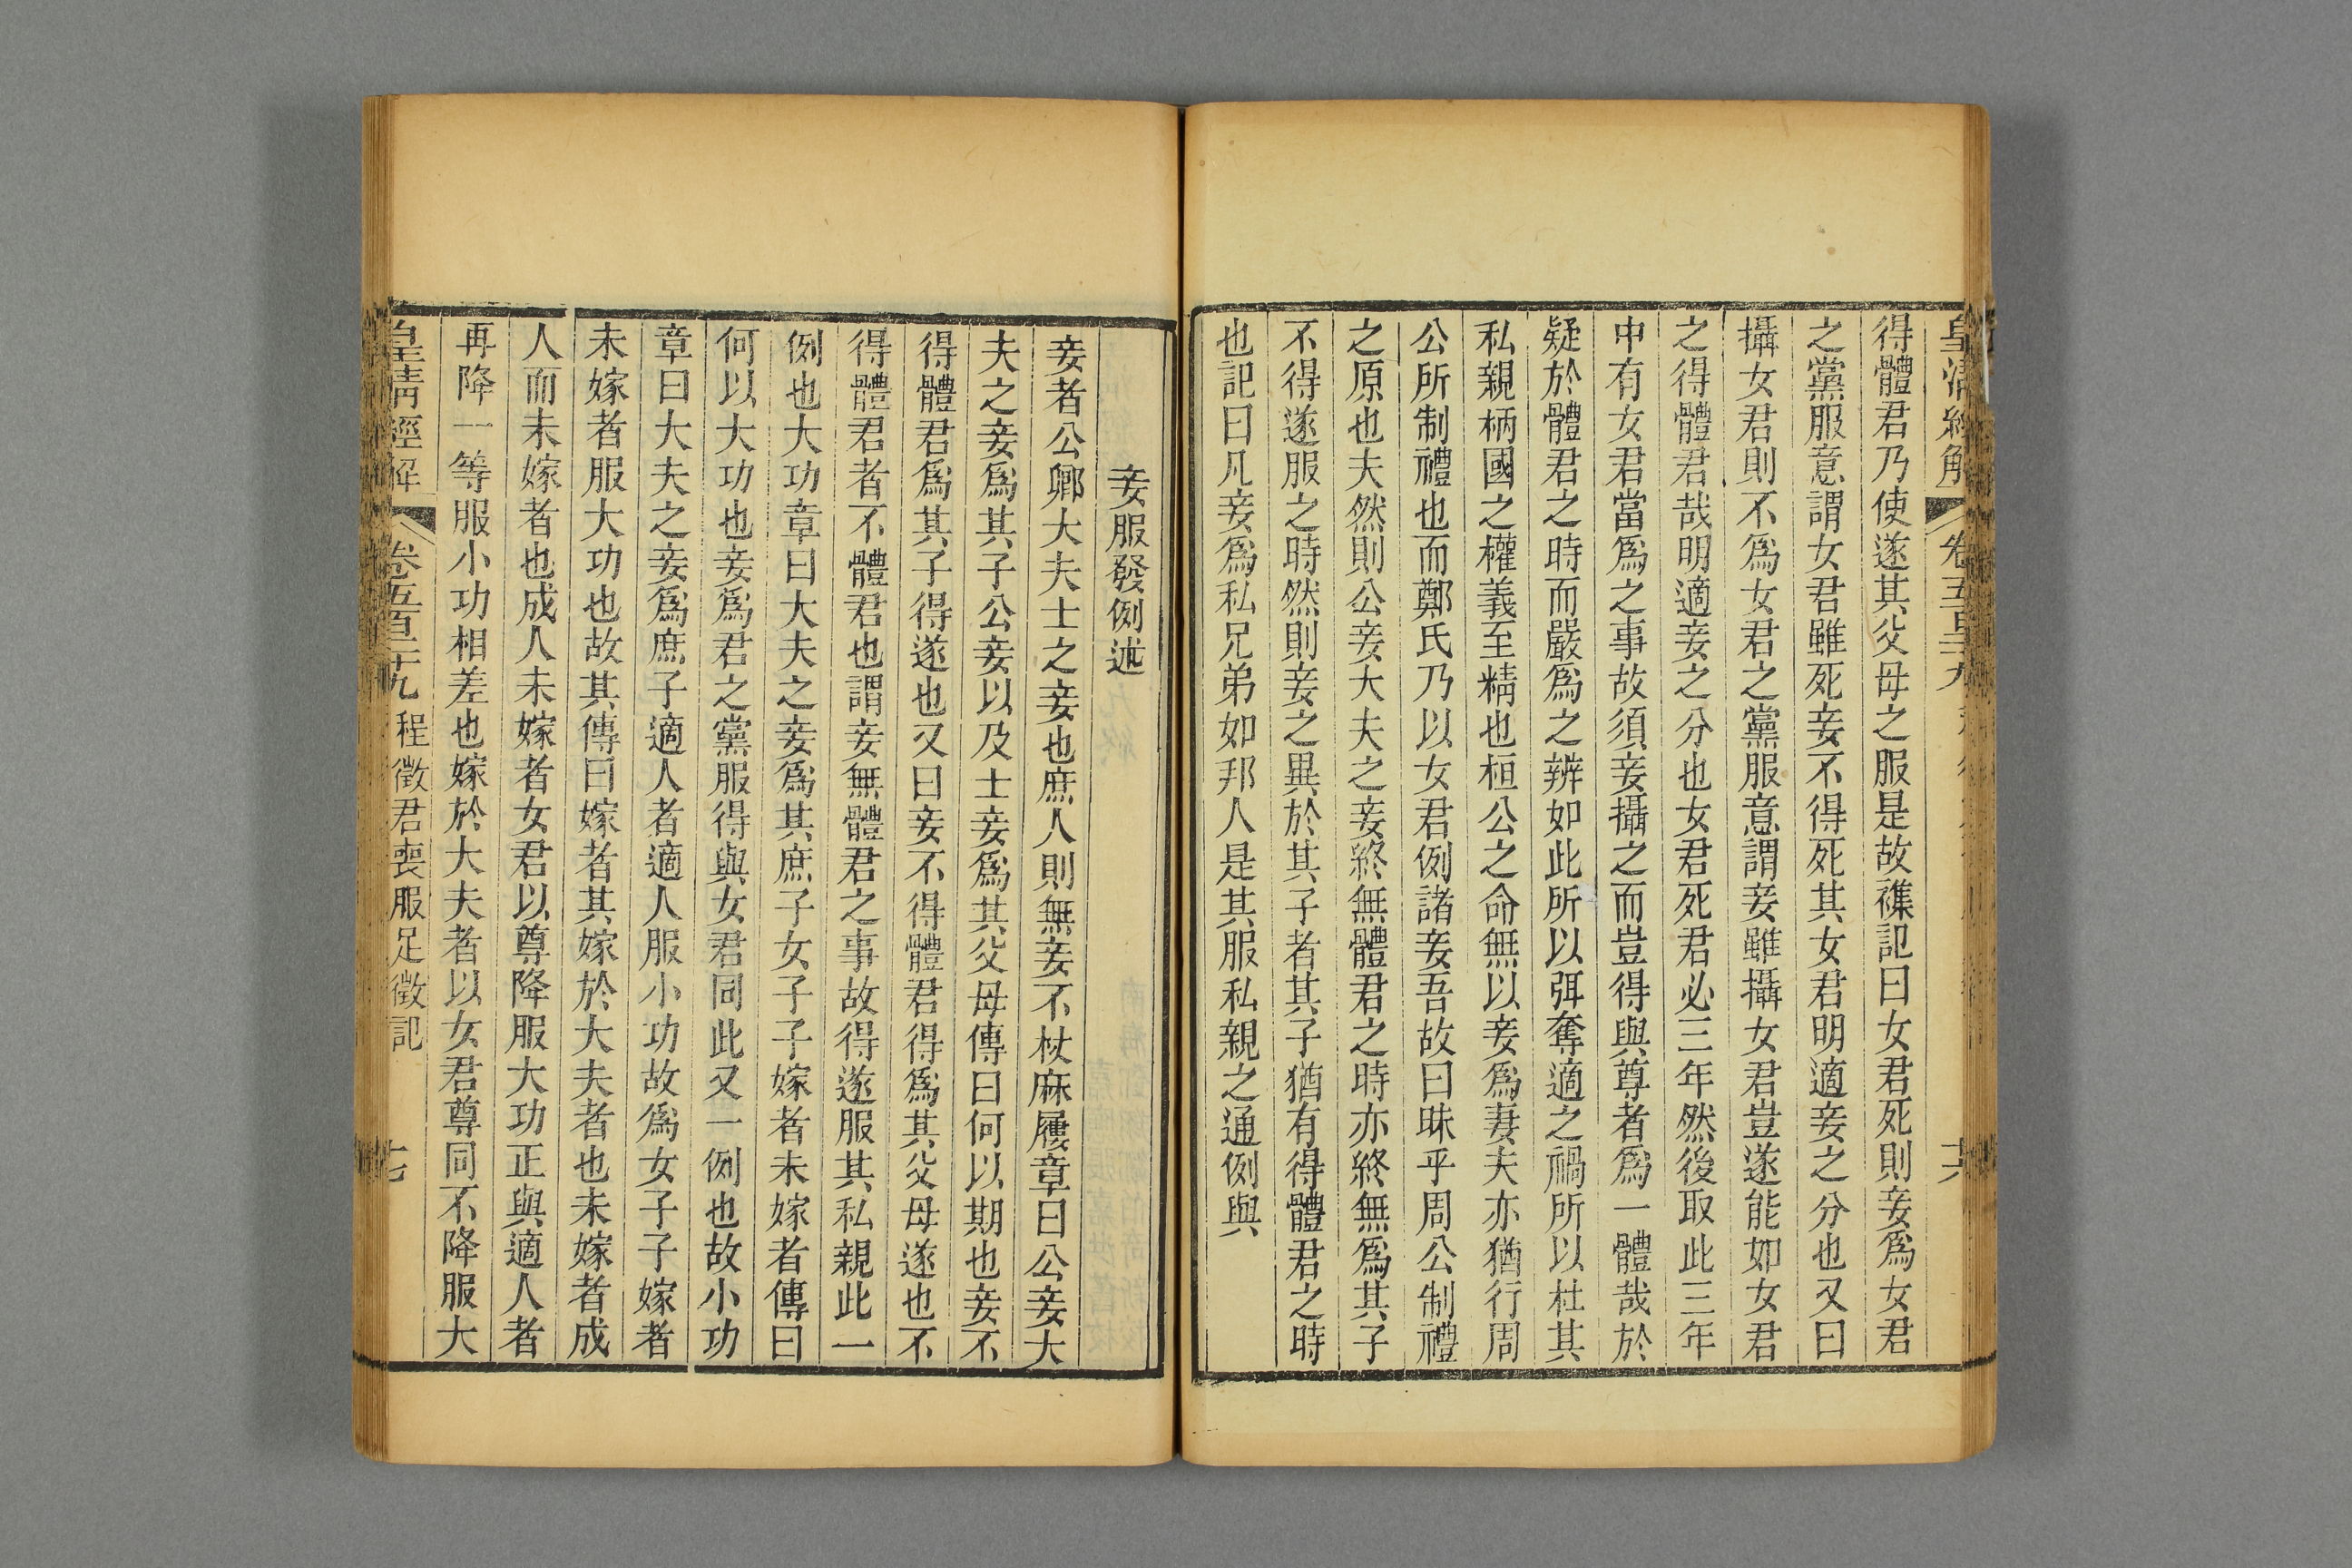 皇清經解
卷五百二十九
十六
得體君乃使遂其父母之服是故襍記曰女君死則妾爲女君
之黨服意謂女君雖死妾不得死其女君明適妾之分也又曰
攝女君則不爲女君之黨服意謂妾雖攝女君豈遂能如女君
之得體君哉明適妾之分也女君死君必三年然後取此三年
中有女君當爲之事故須妾攝之而豈得與尊者爲一體哉於
疑於體君之時而嚴爲之辨如此所以弭奪適之禍所以杜其
私親柄國之權義至精也桓公之命無以妾爲妻夫亦猶行周
公所制禮也而鄭氏乃以女君例諸妾吾故曰昧乎周公制禮
之原也夫然則公妾大夫之妾終無體君之時亦終無爲其子
不得遂服之時然則妾之異於其子者其子猶有得體君之時
也記曰凡妾爲私兄弟如邦人是其服私親之通例與
妾服發例述
妾者公卿大夫士之妾也庶人則無妾不杖麻屨章曰公妾大
夫之妾爲其子公妾以及士妾爲其父母傳曰何以期也妾不
得體君爲其子得遂也又曰妾不得體君得爲其父母遂也不
得體君者不體君也謂妾無體君之事故得遂服其私親此一
例也大功章曰大夫之妾爲其庶子女子子嫁者未嫁者傳曰
何以大功也妾爲君之黨服得與女君同此又一例也故小功
章曰大夫之妾爲庶子適人者適人服小功故爲女子子嫁者
未嫁者服大功也故其傳曰嫁者其嫁於大夫者也未嫁者成
人而未嫁者也成人未嫁者女君以尊降服大功正與適人者
再降一等服小功相差也嫁於大夫者以女君尊同不降服大
皇清經解
卷五百二十九
程徵君喪服足徵記
十七